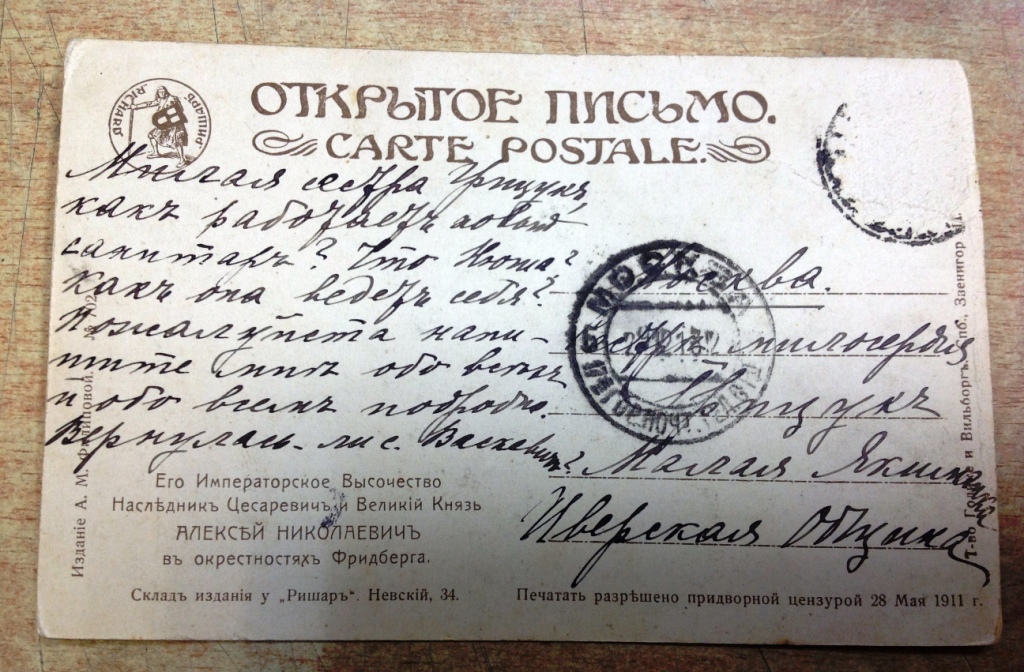 РИШАРЪ. RICHARD
ОТКРЫТОЕ ПИСЬМО.
CARTE POSTALE.
Милая сестра Грицукъ,
какъ работаетъ новый
санитаръ? Что Нюша?
Какъ она ведетъ себя?
Пожалуйста напи-
шите мнѣ обо всемъ
и обо всѣхъ подробно.
Вернулась-ли с. Васкевичъ?
Москва.
милосердія
Грицукъ
Малая Якиманка
Иверская Община
МОСКВА
Его Императорское Высочество
Наслѣдникъ Цесаревичъ и Великій Князь
АЛЕКСѢЙ НИКОЛАЕВИЧЪ
въ окрестностяхъ Фридберга.
Складъ изданія у „Ришаръ". Невскій, 34.
Печатать разрѣшено придворной цензурой 28 Мая 1911 г.
Изданіе А. М.
Т-во и Вильборгъ, Спб., Звенигор